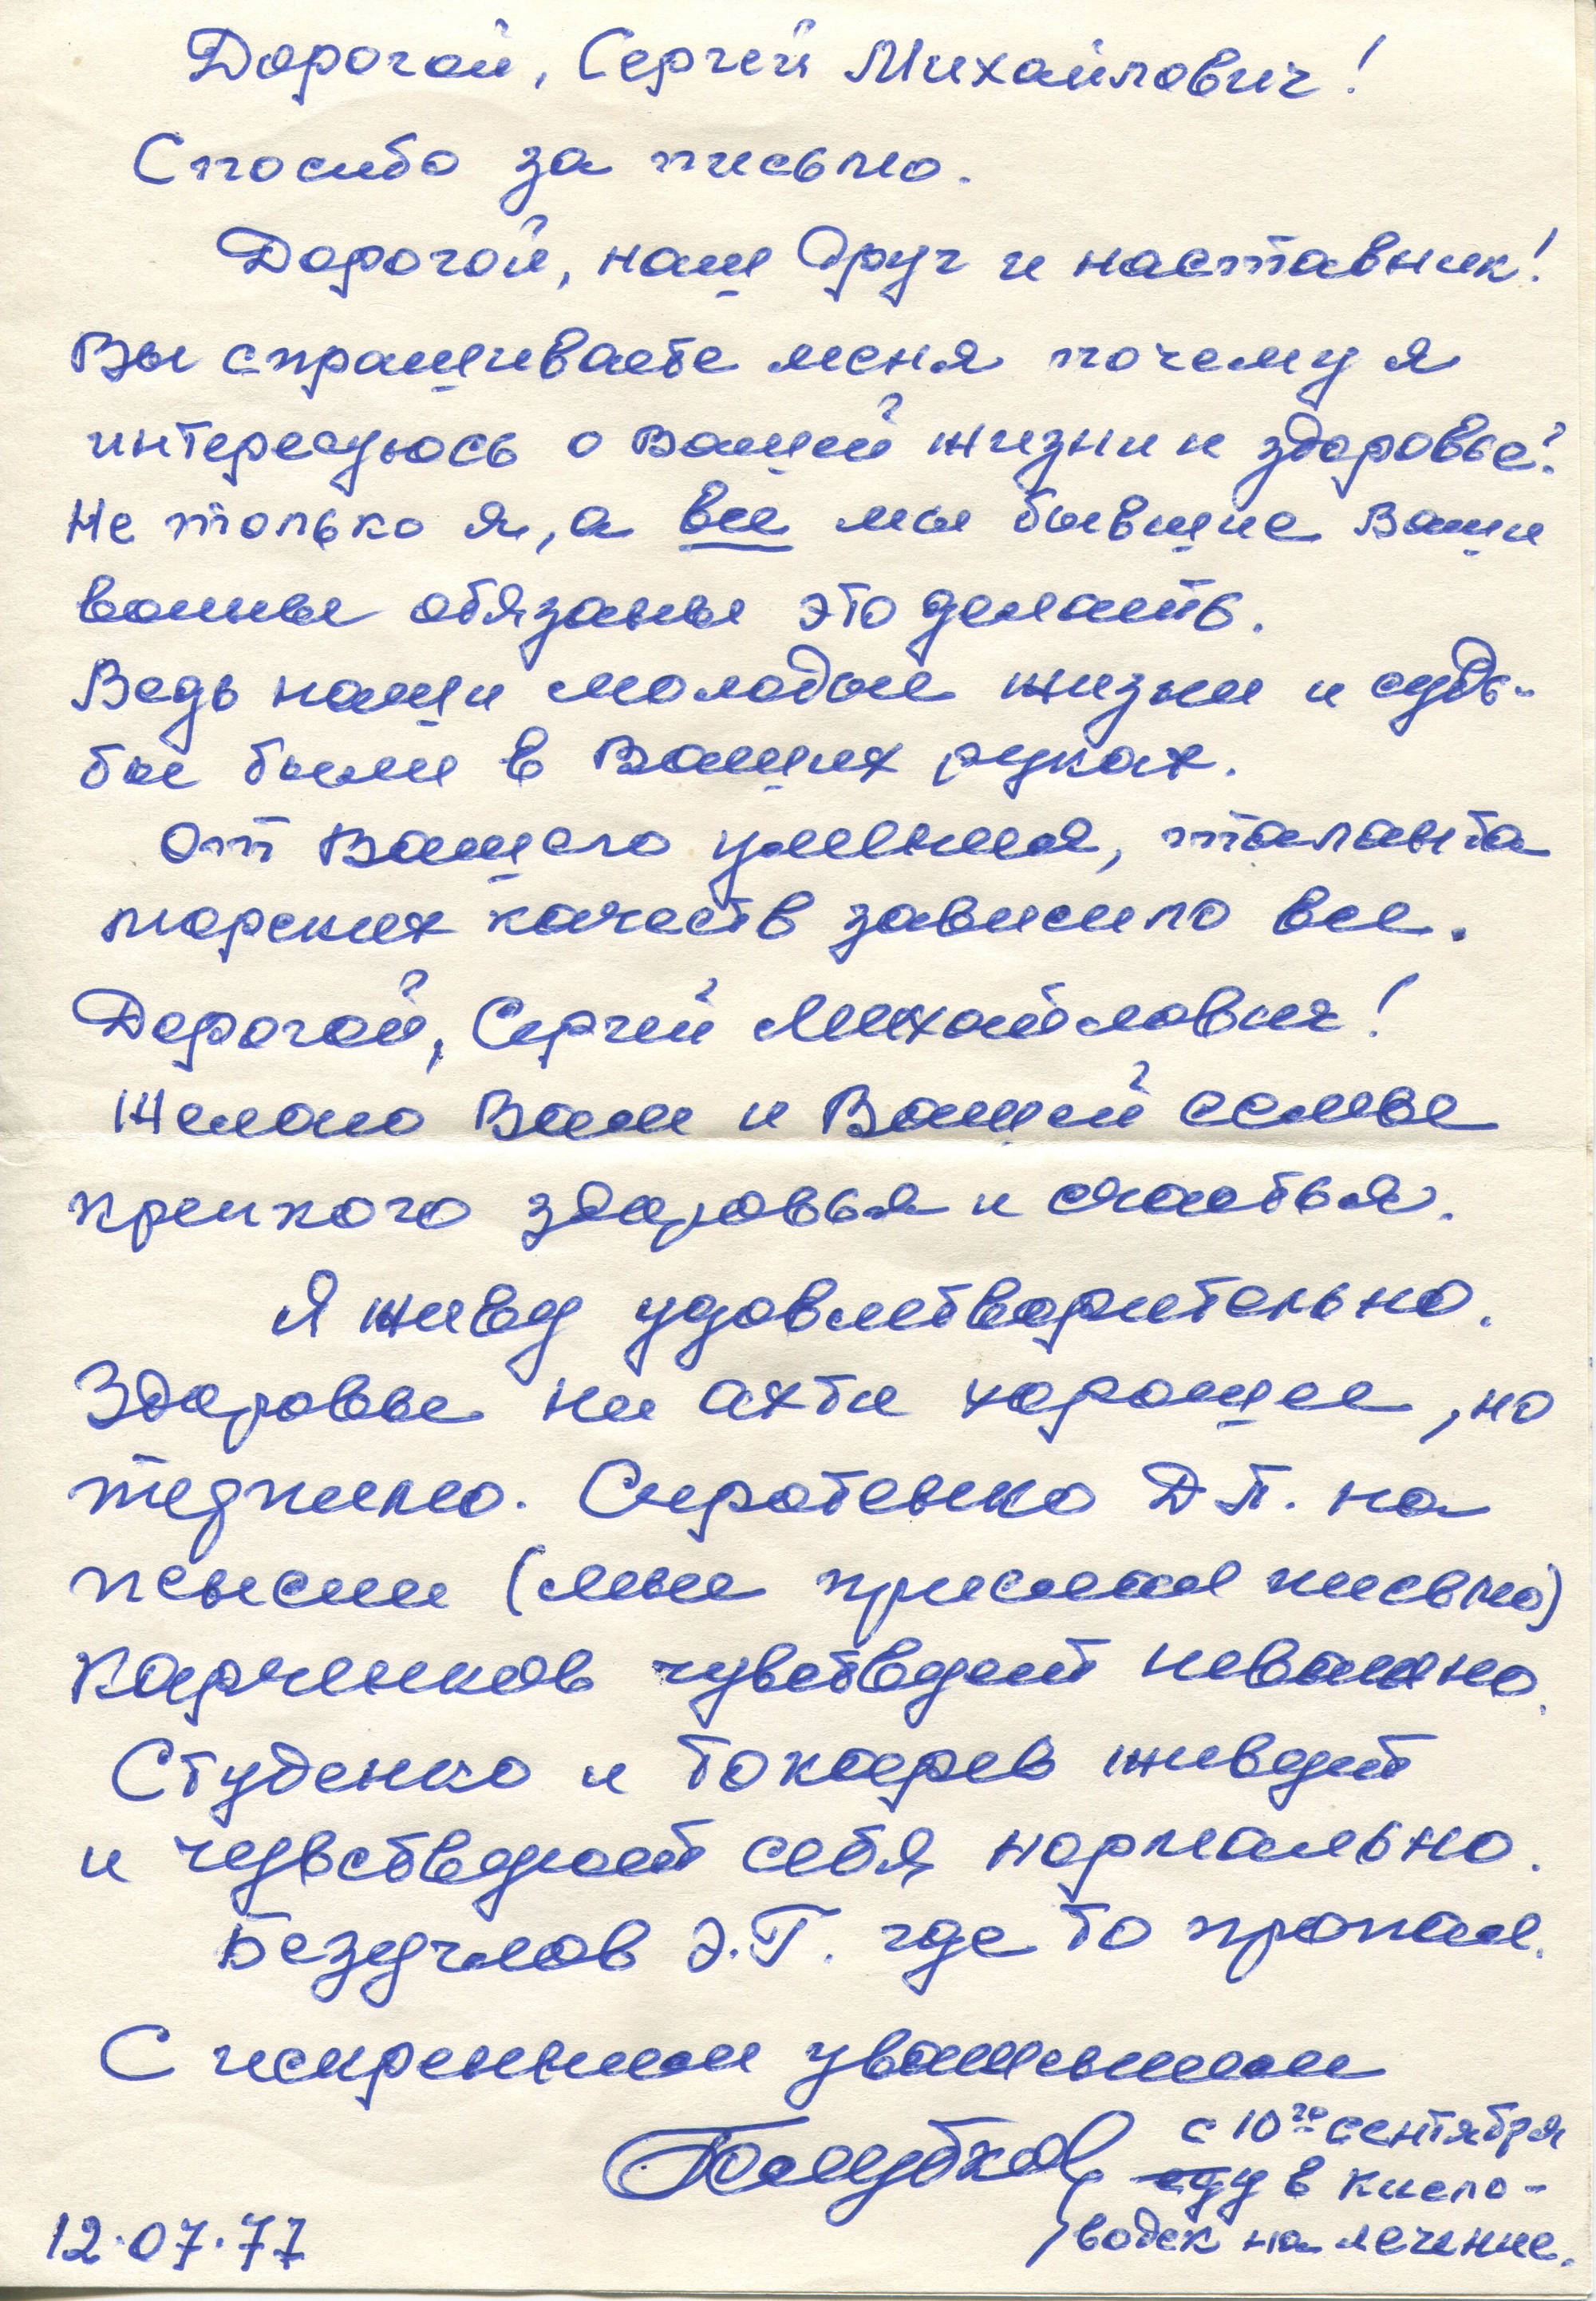 Дорогой, Сергей Михайлович!
Спосибо за письмо.
Дорогой, наш друг и наставник!
Вы спрашиваете меня почему я
интересуюсь о Вашей жизни и здоровье?
Не только я, а все мы бывшие Ваши
воины обязаны это делать.
Ведь наши молодые жизни и судь-
бы были в Ваших руках.
От Вашего умения, таланта
морских качеств зависило все.
Дорогой, Сергей Михайлович!
Желаю Вам и Вашей семье
крепкого здоровья и счастья.
Я живу удовлетворительно.
Здоровье не ахти хорошее, но
терпимо. Сиротенко Д.П. на
пенсии (мне прислал письмо)
Карченков чувствует неважно.
Студенко и Токарев живут
и чувствуют себя нормально.
Безуглов Э.Г. где то пропал.
С искренним уважением
Голубков
с 10го сентября
еду в Кисло-
водск на лечение.
12.07.77